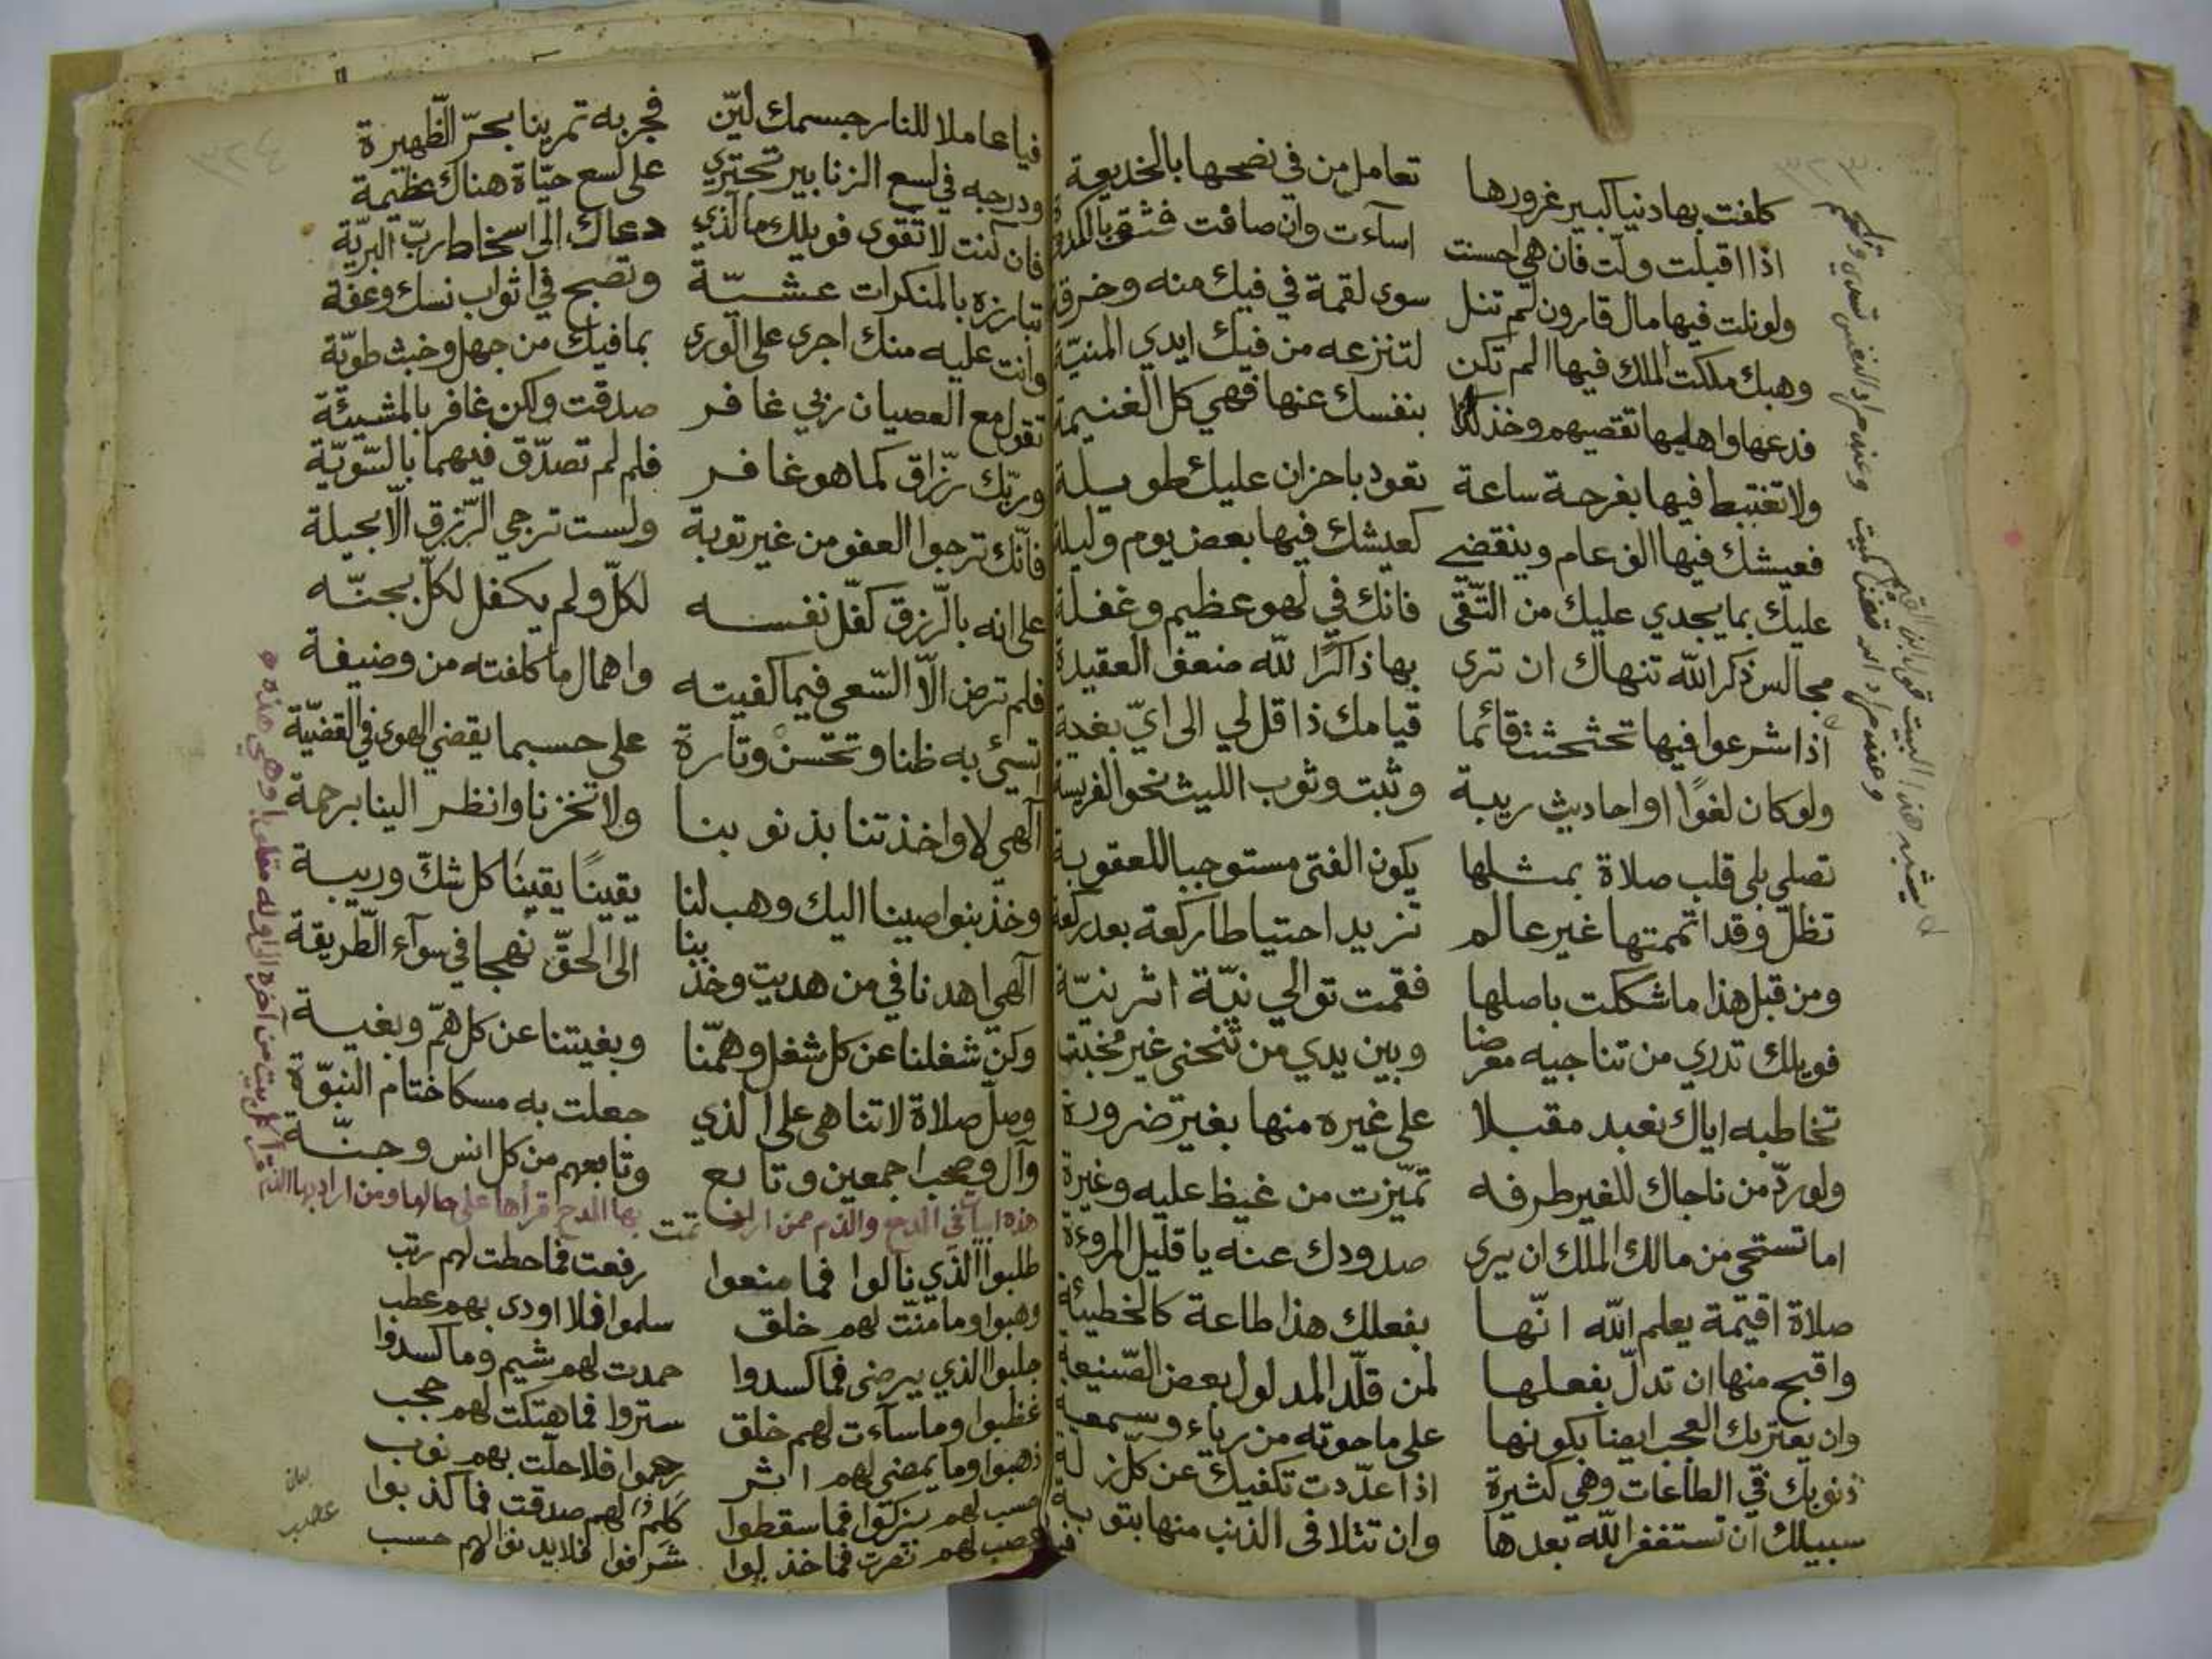 ٣٢٣
كلفت بها دنيا كبير غرورها تعامل من في نصحها بالخديعة
اذا اقبلت ولّت فان هي احسنت اساءت وان صافت فثق بالكدورة
ولو نلت فيها مال قارون لم تنل سوى لقمة في فيك منه وخرقة
وهبك ملكت الملك فيها الم تكن لتنزعه من فيك ايدي المنيّة
فدعها واهليها تقصيهم وخذ كذا بنفسك عنها فهي كل الغنيمة
ولا تغتبط فيها بفرحة ساعة تعود باحزان عليك طويلة
فعيشك فيها الف عام وينقضي كعيشك فيها بعض يوم وليلة
عليك بما يجدي عليك من التّقى فانك في لهو عظيم وغفلة
مجالس ذكر الله تنهاك ان ترى بها ذاكرًا لله ضعف العقيدة
اذا شرعوا فيها تحثحثت قائما قيامك ذا قل لي الى ايّ بغية
ولو كان لغوًا او احاديث ريبة وثبت وثوب الليث نحو الفريسة
تصلي بلى قلب صلاة بمثلها يكون الفتى مستوجبا للعقوبة
تظلّ وقد اتممتها غير عالم تزيد احتياطا ركعة بعد ركعة
ومن قبل هذا ما شككت باصلها فقمت توالي نيّة اثر نيّة
فويلك تدري من تناجيه معرضا وبين يدي من تنحني غير مخبتة
تخاطبه اياك نعبد مقبلا على غيره منها بغير ضرورة
ولو ردّ من ناجاك للغير طرفه تميّزت من غيظ عليه وغيرة
اما تستحي من مالك الملك ان يرى صدودك عنه يا قليل المروءة
صلاة اقيمة يعلم الله انّها بفعلك هذا طاعة كالخطيئة
واقبح منها ان تدلّ بفعلها لمن قلّد المدلول بعض الصّنيعة
وان يعتريك العجب ايضا بكونها على ما حوته من رياء وسمعة
ذنوبك في الطاعات وهي كثيرة اذا عدّدت تكفيك عن كلّ زلة
سبيلك ان تستغفر الله بعدها وان تتلافى الذنب منها بتوبة
يشبه هذا البيت قول ابن
وعند مراد النفس تسدي وتلحم
وعند مراد الله تفنى كميت
٣٢٤
فيا عاملا للنار جسمك ليّن فجربه تمرينا بحرّ الظّهيرة
ودرجه في لسع الزنابير تجتري على لسع حيّاة هناك عظيمة
فان كنت لا تقوى فويلك ما الذي دعاك الى اسخاط ربّ البريّة
تبارزه بالمنكرات عشيّة وتصبح في اثواب نسك وعفة
وانت عليه منك اجرى على الورى بما فيك من جهل وخبث طويّة
تقول مع العصيان ربي غافر صدقت ولكن غافر بالمشيئة
وربّك رزّاق كما هو غافر فلم لم تصدّق فيهما بالسّويّة
فانّك ترجوا العفو من غير توبة ولست ترجي الرّزق الّا بحيلة
على انه بالرّزق كفّل نفسه لكلّ ولم يكفل لكلّ بجنّه
فلم ترض الّا السّعي فيما كفيته واهمال ما كلفته من وضيفة
تسيء به ظنا وتحسن وتارة على حسبما يقضي الهوى في القضيّة
الهي لا واخذتنا بذنوبنا ولا تخزنا وانظر الينا برحمة
وخذ بنواصينا اليك وهب لنا يقينًا يقينا كل شكّ وريبة
الهي اهدنا في من هديت وخذ بنا الى الحقّ نهجا في سوآء الطّريقة
وكن شغلنا عن كل شغل وهمّنا وبغيتنا عن كل همّ وبغية
وصلّ صلاة لا تناهى على الذي جعلت به مسكا ختام النبوّة
وآل وصحب اجمعين وتابع وتابعهم من كل انس وجنّة
تمت
هذه ابيات في المدح والذم فمن اراد بها المدح قرأها على حالها ومن اراد بها الذم
قرأ كل بيت من آخره الى اوله مقلوبا وهي هذه
طلبوا الذي نالوا فما منعوا رفعت فما حطت لهم رتب
وهبوا وما منّت لهم خلق سلموا فلا اودى بهم عطب
جلبوا الذي يرضى فما كسدوا حمدت لهم شيم وما كسدوا
غظبوا وما ساءت لهم خلق ستروا فما هتكت لهم حجب
ذهبوا وما يمضي لهم اثر رحموا فلا حلّت بهم نوب
حسب لهم يزكوا فما سقطوا كلم لهم صدقت فما كذبوا
عصب لهم نصرت فما خذلوا شرافوا فلا يدنوا لهم حسب